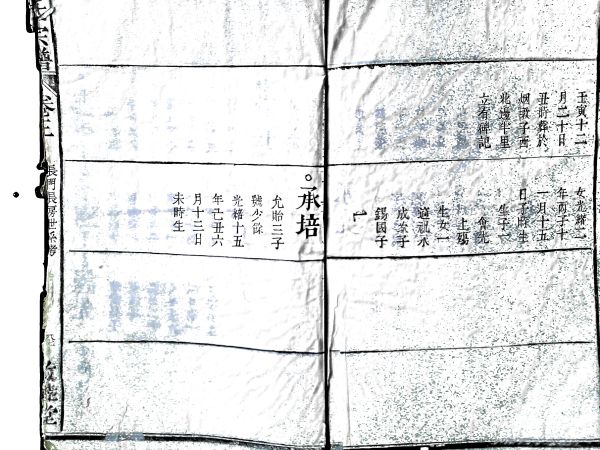 壬寅十二
月二十日
丑時葬於
烟墩子西
北邊半里
立有碑記
女光緒二
年丙子十
一月十五
日子時生
生子一
會元
上殤
生女一
適祖永
成泰子
錫國子
承培
允貽三子
號少餘
光緒十五
年己丑六
月十三日
未時生
宗譜
長門長房世系考
堂